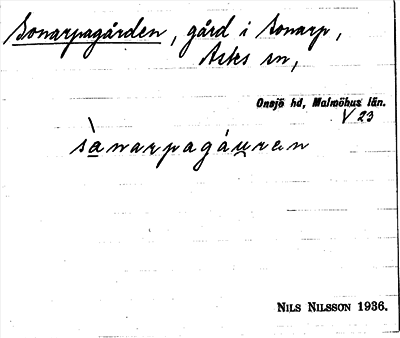 Sonarpagården, gård i Sonarp,
Asks sn,
Onsjö hd, Malmöhus län.
V 23
sànarpagáuran
NILS NILSSON 1936.